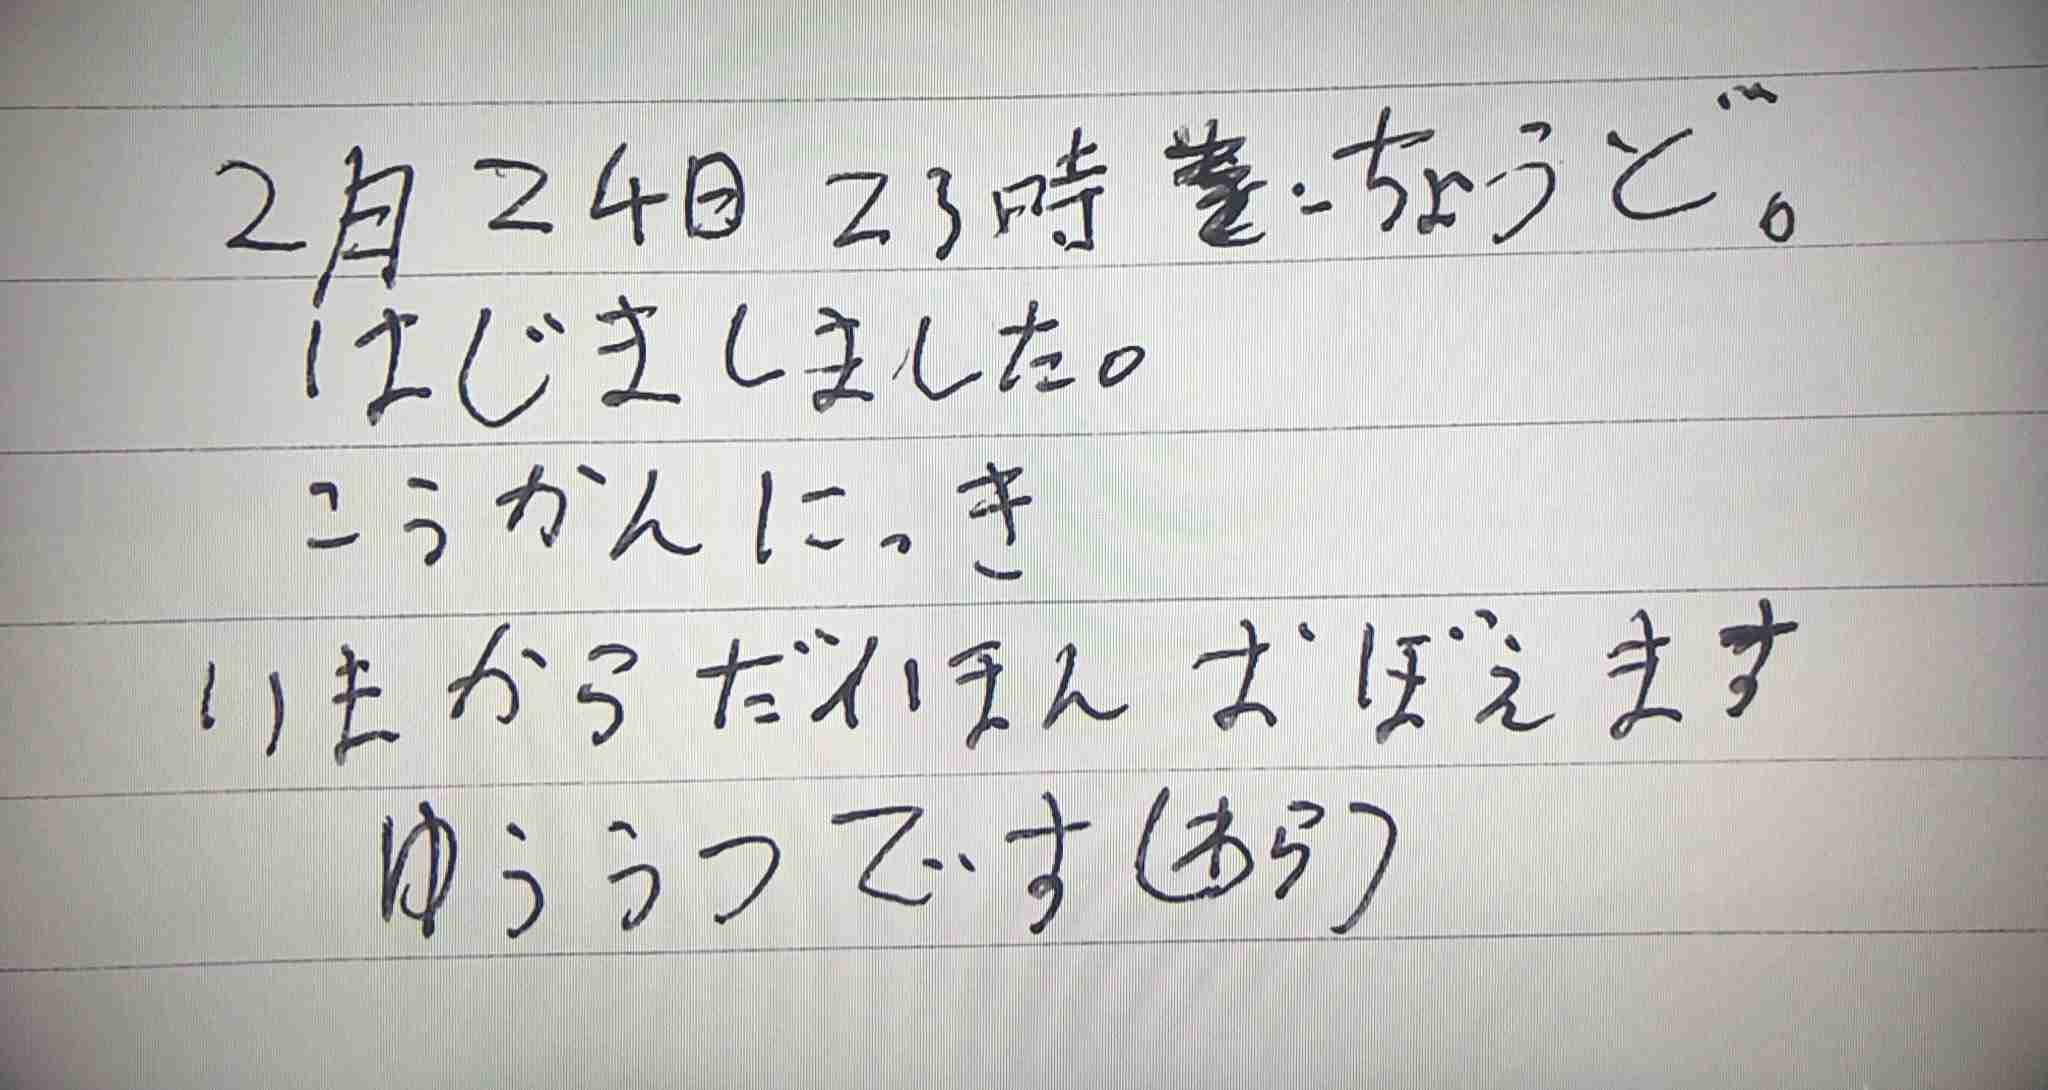 2月24日 23時 ちょうど。
はじましました。
こうかんにっき
いまからだいほんおぼえます
ゆううつです(わら)